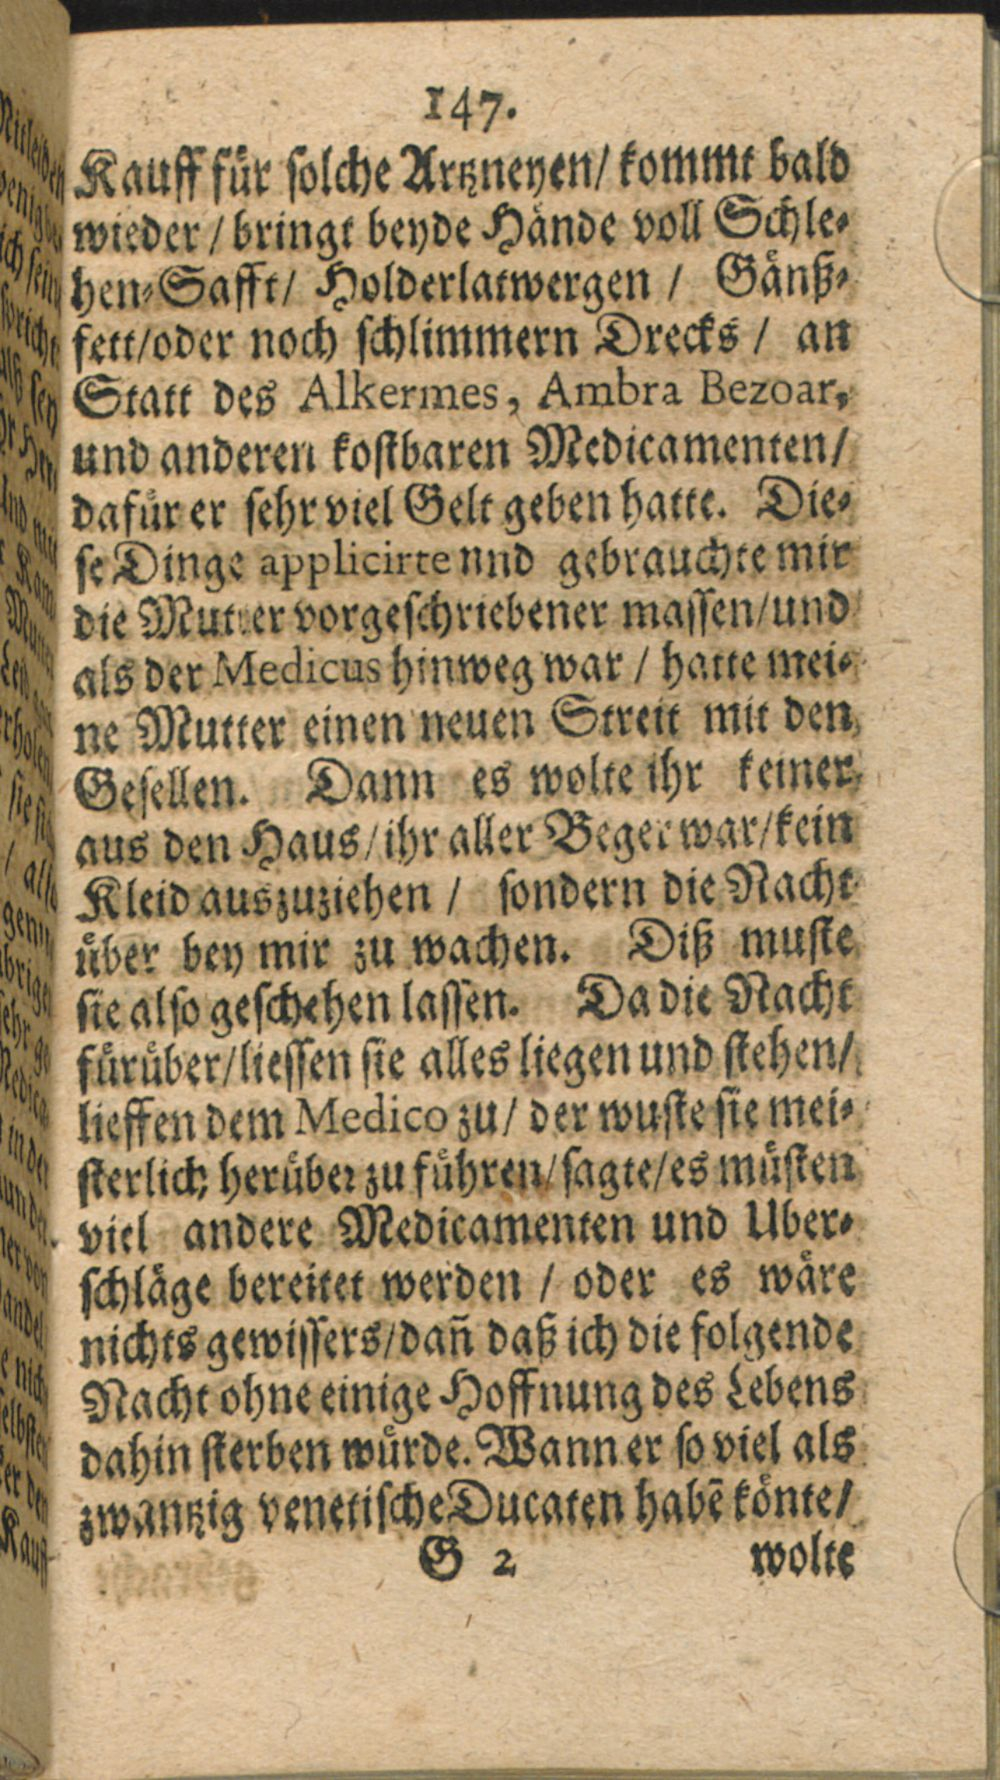 147.
Kauff für solche Artzneyen/ kommt bald
wieder / bringt beyde Hände voll Schle-
hen-Safft/ Holderlatwergen / Gänß-
fett/oder noch schlimmern Drecks / an
Statt des Alkermes, Ambra Bezoar,
und anderen kostbaren Medicamenten/
dafür er sehr viel Gelt geben hatte. Die-
se Dinge applicirte nnd gebrauchte mir
die Mutter vorgeschriebener massen/und
als der Medicus hinweg war / hatte mei-
ne Mutter einen neuen Streit mit den
Gesellen. Dann es wolte ihr keiner
aus den Haus/ihr aller Beger war/kein
Kleid auszuziehen / sondern die Nacht
über bey mir zu wachen. Diß muste
sie also geschehen lassen. Da die Nacht
fürüber/liessen sie alles liegen und stehen/
lieffen dem Medico zu/ der wuste sie mei-
sterlich herüber zu führen/sagte/es müsten
viel andere Medicamenten und Uber-
schläge bereitet werden / oder es wäre
nichts gewissers/dañ daß ich die folgende
Nacht ohne einige Hoffnung des Lebens
dahin sterben würde. Wann er so viel als
zwantzig venetische Ducaten habẽ könte/
G 2 wolte